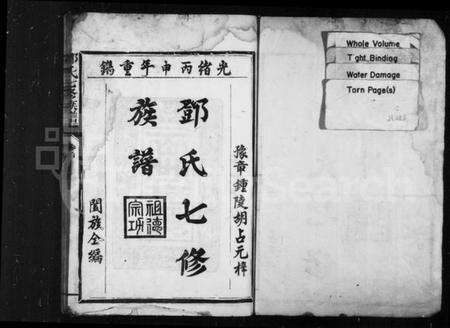 光緒丙申年重鐫
鄧氏七修
族譜
祖德
宗功
豫章鍾陵胡占元梓
闔族仝編
Whole Volume
Tight Binding
Water Damage
Torn Page(s)